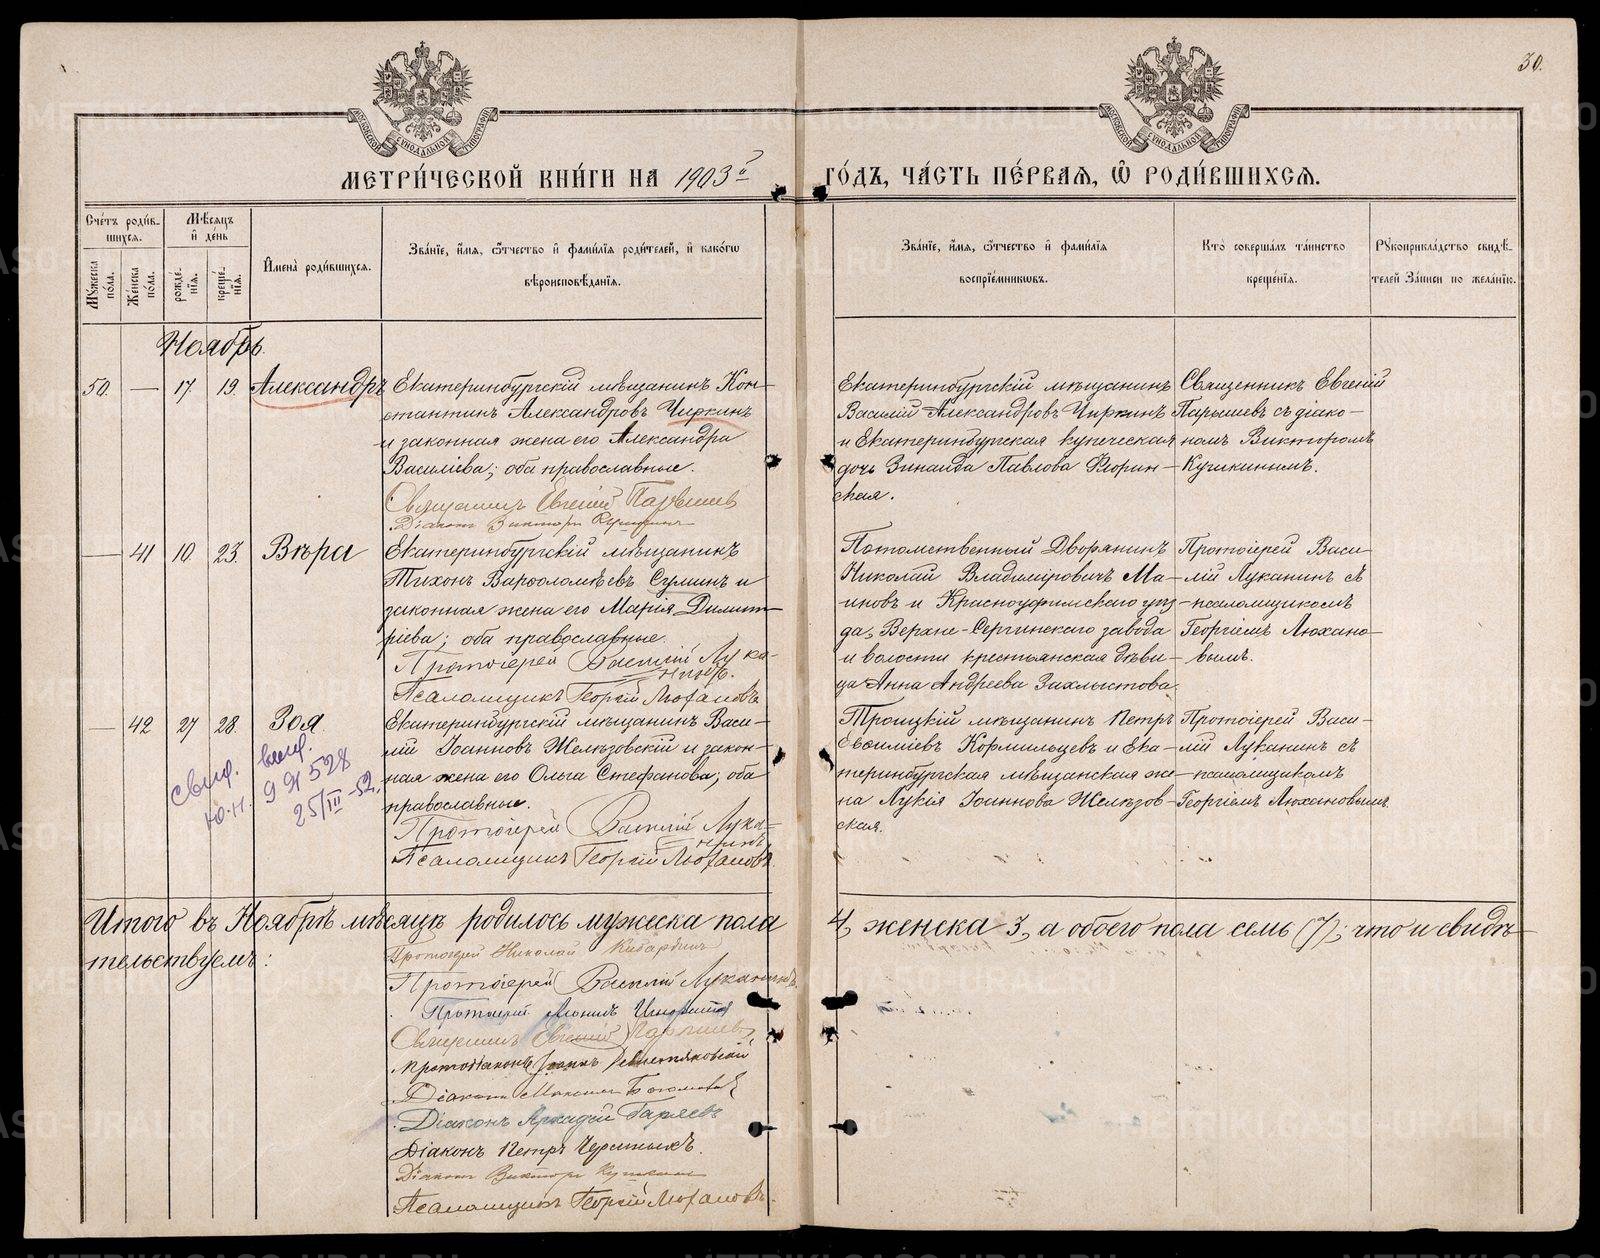 30.
МЕТРИ́ЧЕСКОЙ КНИ́ГИ НА 1903й ГО́ДЪ, ЧА́СТЬ ПЕ́РВАѦ, Ѡ҆ РОДИ́ВШИХСѦ.
Сче́тъ роди́в-
шихсѧ.
Мѣ́сѧцъ
и҆ де́нь
И҆мена̀ роди́вшихсѧ.
Зва́нїе, и҆́мѧ, ѻ҆́тчество и҆ фами́лїѧ роди́телей, и҆ како́гѡ
вѣроисповѣ́данїѧ.
Зва́нїе, и҆́мѧ, ѻ҆́тчество и҆ фами́лїѧ
воспрїе́мникѡвъ.
Кто̀ соверша́лъ та́инство
креще́нїѧ.
Рꙋкоприкла́дство свидѣ́-
телей за́писи по жела́нїю.
Мꙋ́жеска
по́ла.
Же́нска
по́ла.
рожде́-
нїѧ.
креще́-
нїѧ.
Ноябрь.
50. — 17 19. Александръ
Екатеринбургскій мѣщанинъ Кон-
стантинъ Александровъ Чиркинъ
и законная жена его Александра
Василіева; оба православные.
Священникъ Евгеній Парышев
Діаконъ Викторъ Кушкинъ
Екатеринбургскій мѣщанинъ
Василій Александровъ Чиркинъ
и Екатеринбургская купеческая
дочь Зинаида Павлова Флорин-
ская.
Священникъ Евгеній
Парышевъ съ діако-
номъ Викторомъ
Кушкинымъ.
— 41 10. 23. Вѣра
Екатеринбургскій мѣщанинъ
Тихонъ Варѳоломѣевъ Суминъ и
законная жена его Марія Димит-
ріева; оба православные.
Протоіерей Василій Лука-
нинъ.
Псаломщикъ Георгій Люхановъ
Потомственный Дворянинъ
Николай Владиміровичъ Ма-
иновъ и Красноуфимскаго уѣз-
да, Верхне-Сергинскаго завода
и волости крестьянская дѣви-
ца Анна Андреева Захлыстова.
Протоіерей Васи-
лій Луканинъ съ
псаломщикомъ
Георгіемъ Люхано-
вымъ.
— 42 27 28. Зоя.
Екатеринбургскій мѣщанинъ Васи-
лій Іоанновъ Желѣзовскій и закон-
ная жена его Ольга Стефанова; оба
православные.
Протоіерей Василій Лука-
нинъ
Псаломщикъ Георгій Люхановъ.
Троицкій мѣщанинъ Петръ
Евѳиміевъ Кормильцевъ и Ека-
теринбургская мѣщанская же-
на Лукія Іоаннова Желѣзов-
ская.
Протоіерей Васи-
лій Луканинъ съ
псаломщикомъ
Георгіемъ Люхановымъ.
25/III-52.
Итого въ Ноябрѣ мѣсяцѣ родилось мужеска пола 4, женска 3, а обоего пола семь (7); что и свидѣ-
тельствуемъ:
Протоіерей Николай
Протоіерей Василій Луканинъ.
Протоіерей
Священникъ Евгеній Парышевъ
Протодіаконъ Іоаннъ
Діаконъ
Діаконъ Аркадій Гаряевъ
Діаконъ Петръ
Діаконъ Викторъ Кушкинъ
Псаломщикъ Георгій Люхановъ.